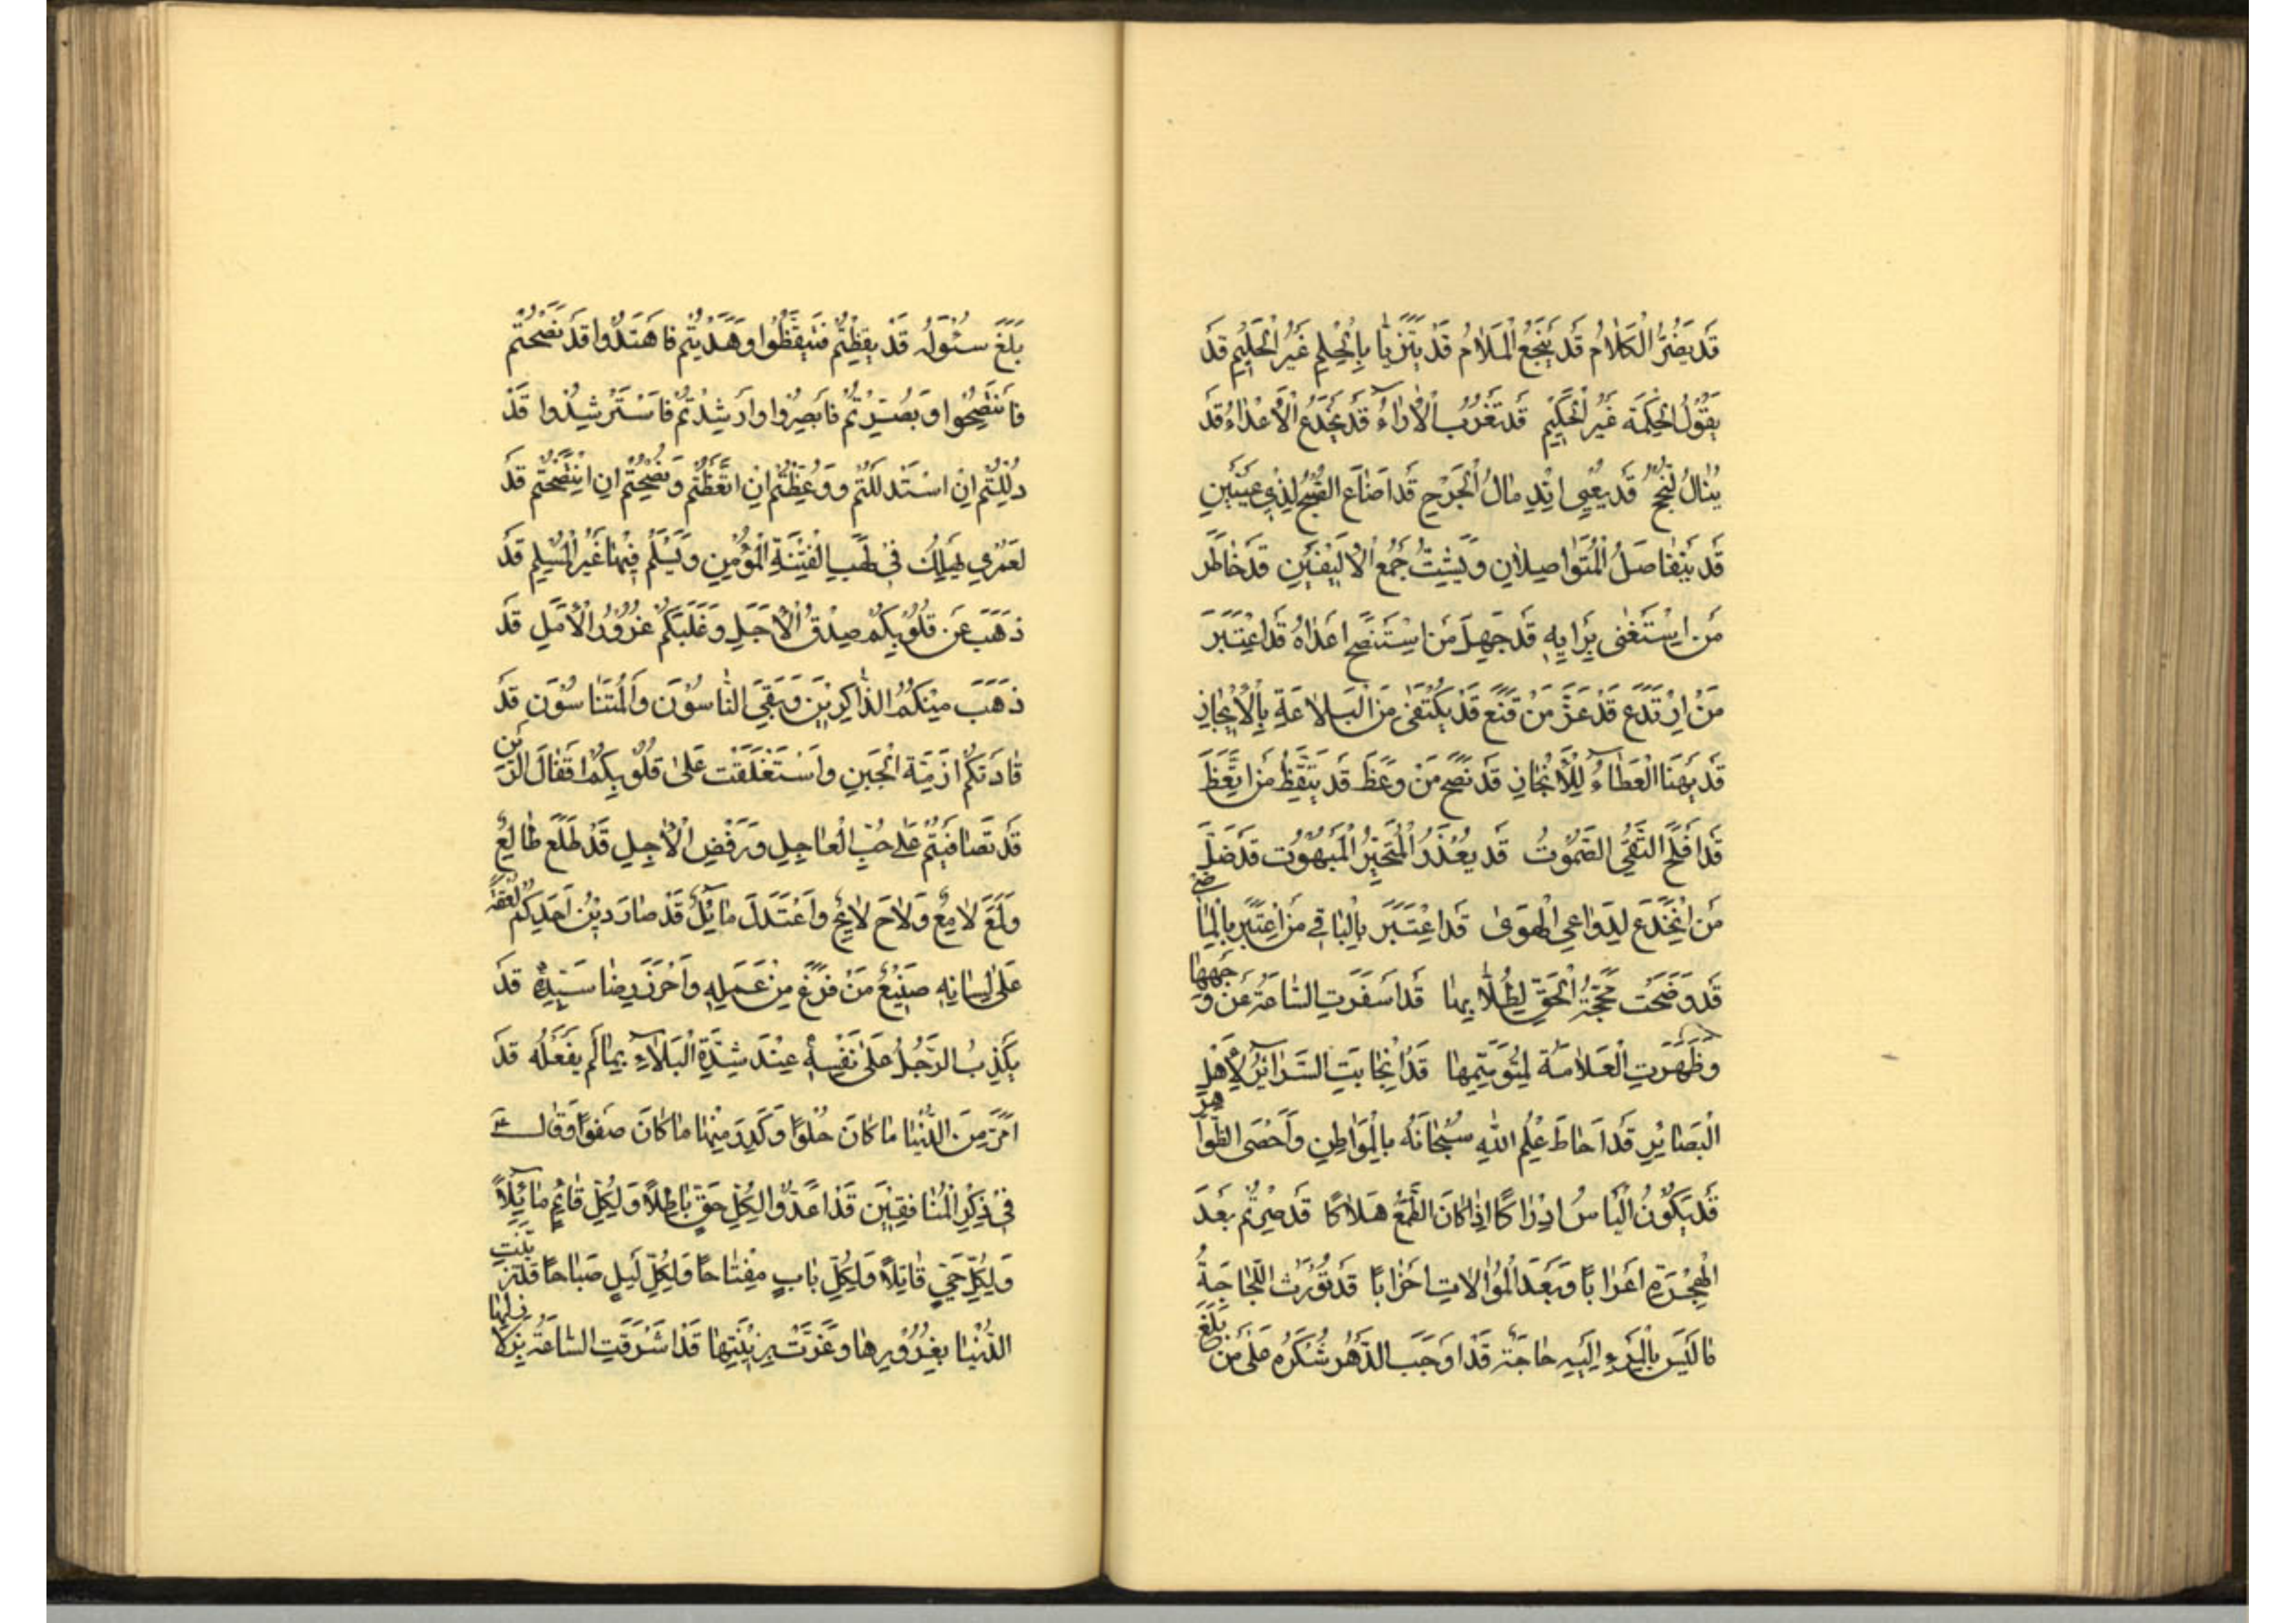 قَد يَضُرُّ الْكَلَامُ قَد يَنْجَعُ الْمَلَامُ قَد يَتَزَيَّا بِالْحِلْمِ غَيْرُ الْحَلِيمِ قَد
يَقُولُ الْحِكْمَةَ غَيْرُ الْحَكِيمِ قَد تَغْرُبُ الْأَرَاءُ قَد يُخْدَعُ الْأَعْدَاءُ قَد
يُنَالُ النُّجْحُ قَد يُعْيِي انْدِمَالُ الْجَرْحِ قَد اَضَاءَ الصُّبْحُ لِذِي عَيْنَيْنِ
قَد يَتَفَاصَلُ الْمُتَوَاصِلَانِ وَيَشِتُّ جَمْعُ الْاَلِيفَيْنِ قَد خَاطَرَ
مَنِ اسْتَغْنٰى بِرَايِهِ قَد جَهِلَ مَنِ اسْتَنْصَحَ اَعْدَاهُ قَد اعْتَبَرَ
مَنِ ارْتَدَعَ قَد عَزَّ مَنْ قَنَعَ قَد يُكْتَفٰى مِنَ الْبَلَاغَةِ بِالْاِيجَازِ
قَد يَهْنَا الْعَطَاءُ لِلْاِنْجَازِ قَد نَصَحَ مَنْ وَعَظَ قَد يَتَّقِظُ مَنِ اتَّعَظَ
قَد اَفْلَحَ التَّقِيُّ الصَّمُوتُ قَد يُعْذَرُ الْمُتَحَيِّرُ الْمَبْهُوتُ قَد ضَلَّ
مَنِ انْخَدَعَ لِدَوَاعِي الْهَوٰى قَد اعْتَبَرَ بِالْبَاقِي مَنِ اعْتَبَرَ بِالْمَاضِي
قَد وَضَحَتْ مَحَجَّةُ الْحَقِّ لِطُلَّابِهَا قَد اَسْفَرَتِ السَّاعَةُ عَنْ وَجْهِهَا
وَظَهَرَتِ الْعَلَامَةُ لِمُتَوَسِّمِهَا قَد انْجَابَتِ السَّرَائِرُ لِاَهْلِ
الْبَصَائِرِ قَد اَحَاطَ عِلْمُ اللّٰهِ سُبْحَانَهُ بِالْبَوَاطِنِ وَاَحْصَى الظَّوَاهِرَ
قَد يَكُونُ الْيَاسُ اِدْرَاكًا اِذَا كَانَ الطَّمَعُ هَلَاكًا قَد صِرْتُمْ بَعْدَ
الْهِجْرَةِ اَعْرَابًا وَبَعْدَ الْمُوَالَاتِ اَحْزَابًا قَد تُوْرَثُ اللَّجَاجَةُ
مَا لَيْسَ بِالْمَرْءِ اِلَيْهِ حَاجَةٌ قَد اَوْجَبَ الدَّهْرُ شُكْرَهُ عَلٰى مَنْ بَلَغَ
بَلَغَ سُئُوْلَهُ قَد يُقِظْتُمْ فَتَيَقَّظُوا وَهُدِيتُمْ فَاهْتَدُوا قَد نُصِحْتُمْ
فَانْتَصِحُوا وَبُصِّرْتُمْ فَابْصِرُوا وَارْشِدْتُمْ فَاسْتَرْشِدُوا قَد
دُلِلْتُمْ اِنِ اسْتَدْلَلْتُمْ وَوُعِظْتُمْ اِنِ اتَّعَظْتُمْ وَنُصِحْتُمْ اِنِ انْتَصَحْتُمْ قَد
لَعَمْرِي يَهْلِكُ فِي لَهَبِ الْفِتْنَةِ الْمُؤْمِنِ وَيَسْلَمُ فِيهَا غَيْرُ الْمُسْلِمِ قَد
ذَهَبَ عَنْ قُلُوبِكُمْ صِدْقُ الْاَجَلِ وَغَلَبَكُمْ غُرُورُ الْاَمَلِ قَد
ذَهَبَ مِنْكُمُ الذَّاكِرِينَ وَبَقِيَ النَّاسُونَ وَالْمُتَنَاسُونَ قَد
قَادَتْكُمْ اَزِمَّةُ الْجَبَنِ وَاسْتَغْلَقَتْ عَلٰى قُلُوبِكُمْ اَقْفَالَ الرَّيْنِ
قَد تَصَافَيْتُمْ عَلٰى حُبِّ الْعَاجِلِ وَرَفْضِ الْاٰجِلِ قَد طَلَعَ طَالِعٌ
وَلَمَعَ لَامِعٌ وَلَاحَ لَائِحٌ وَاعْتَدَلَ مَائِلٌ قَد صَارَ دِيْنُ اَحَدِكُمْ لُعْقَةً
عَلٰى لِسَانِهِ صَنِيْعُ مَنْ فَرَغَ مِنْ عَمَلِهِ وَاَحْرَزَ رِضَا سَيِّدِهِ قَد
يَكْذِبُ الرَّجُلُ عَلٰى نَفْسِهِ عِنْدَ شِدَّةِ الْبَلَاءِ بِمَا لَمْ يَفْعَلْهُ قَد
اَمَرَّ مِنَ الدُّنْيَا مَا كَانَ حُلْوًا وَكَدِرَ مِنْهَا مَا كَانَ صَفْوًا وَقَالَ
فِي ذِكْرِ الْمُنَافِقِيْنَ قَد اَعَدُّوا لِكُلِّ حَقٍّ بَاطِلًا وَلِكُلِّ قَائِمٍ مَائِلًا
وَلِكُلِّ حَيٍّ قَاتِلًا وَلِكُلِّ بَابٍ مِفْتَاحًا وَلِكُلِّ لَيْلٍ صَبَاحًا قَد تَزَيَّنَتِ
الدُّنْيَا بِغُرُورِهَا وَغَرَّتْ بِزِيْنَتِهَا قَد اَشْرَقَتِ السَّاعَةُ بِزَلَازِلِهَا